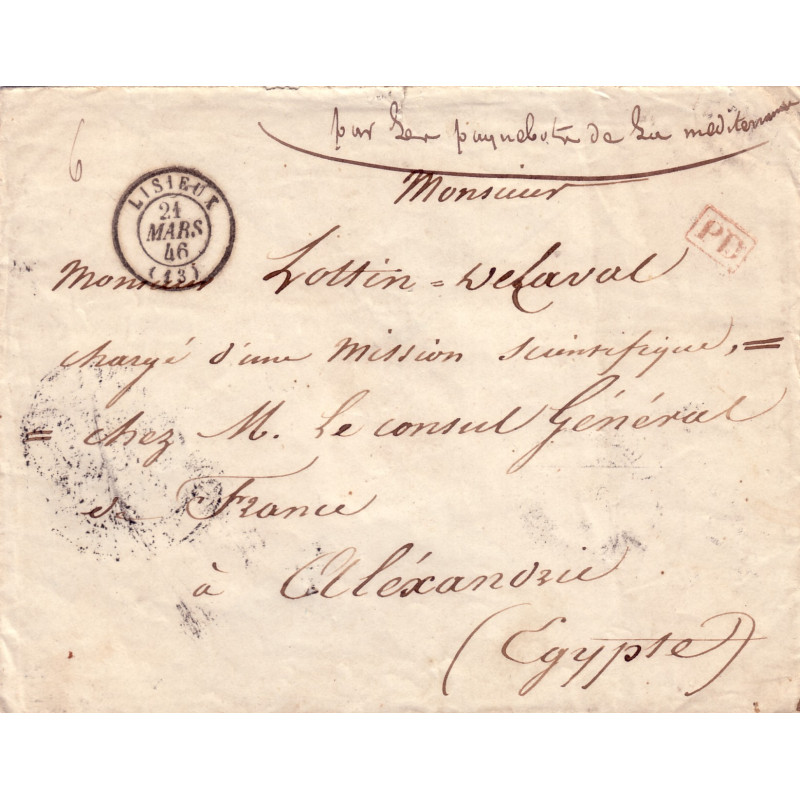 par les paquebots de la méditerranée
6
Monsieur
LISIEUX
21
MARS
46
(13)
PD
Monsieur Lottin = DeLaval
chargé d'une Mission scientifique, =
= chez M. Le consul Général
de France
à Aléxandrie
(Egypte)